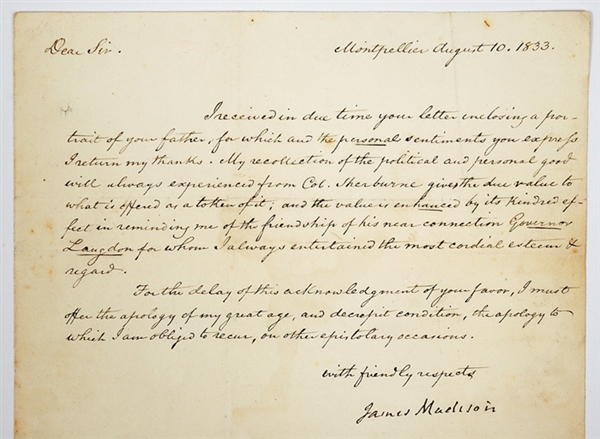 Dear Sir.
Montpellier August 10. 1833.
I received in due time your letter inclosing a por-
trait of your father, for which and the personal sentiments you express
I return my thanks. My recollection of the political and personal good
will always experienced from Col. Sherburne gives the due value to
what is offered as a token of it; and the value is enhanced by its kindred ef-
fect in reminding me of the friendship of his near connection Governor
Langdon for whom I always entertained the most cordial esteem &
regard.
For the delay of this acknowledgment of your favor, I must
offer the apology of my great age, and decrepit condition, the apology to
which I am obliged to recur, on other epistolary occasions.
with friendly respects
James Madison